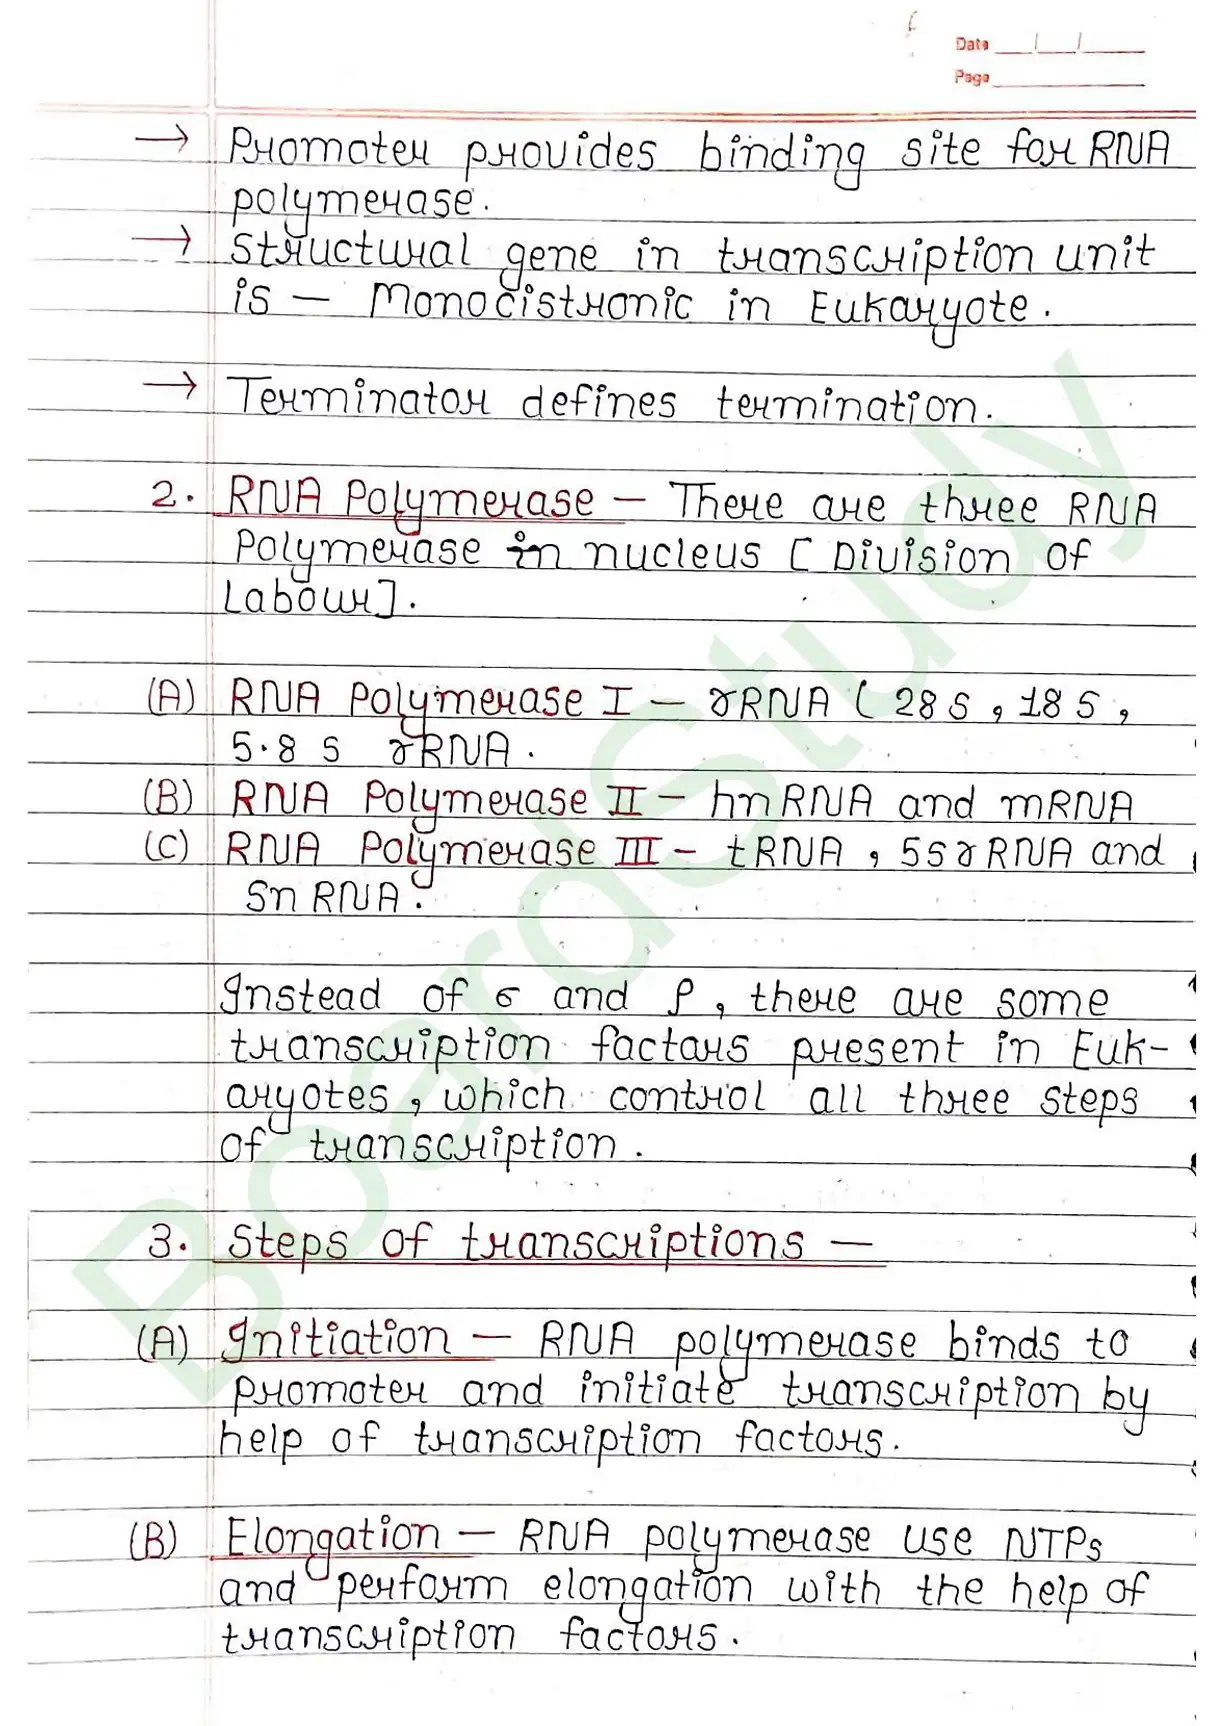 Date / /
Page
→ Promoter provides binding site for RNA
polymerase.
→ Structural gene in transcription unit
is — Monocistronic in Eukaryote.
→ Terminator defines termination.
2. RNA Polymerase — There are three RNA
Polymerase in nucleus [ Division of
Labour].
(A) RNA Polymerase I — rRNA ( 28 S , 18 S ,
5.8 S rRNA.
(B) RNA Polymerase II — hnRNA and mRNA
(C) RNA Polymerase III — tRNA , 5S rRNA and
Sn RNA.
Instead of σ and ρ , there are some
transcription factors present in Euk-
aryotes , which control all three steps
of transcription.
3. Steps of transcriptions —
(A) Initiation — RNA polymerase binds to
promoter and initiate transcription by
help of transcription factors.
(B) Elongation — RNA polymerase use NTPs
and perform elongation with the help of
transcription factors.
BoardStudy